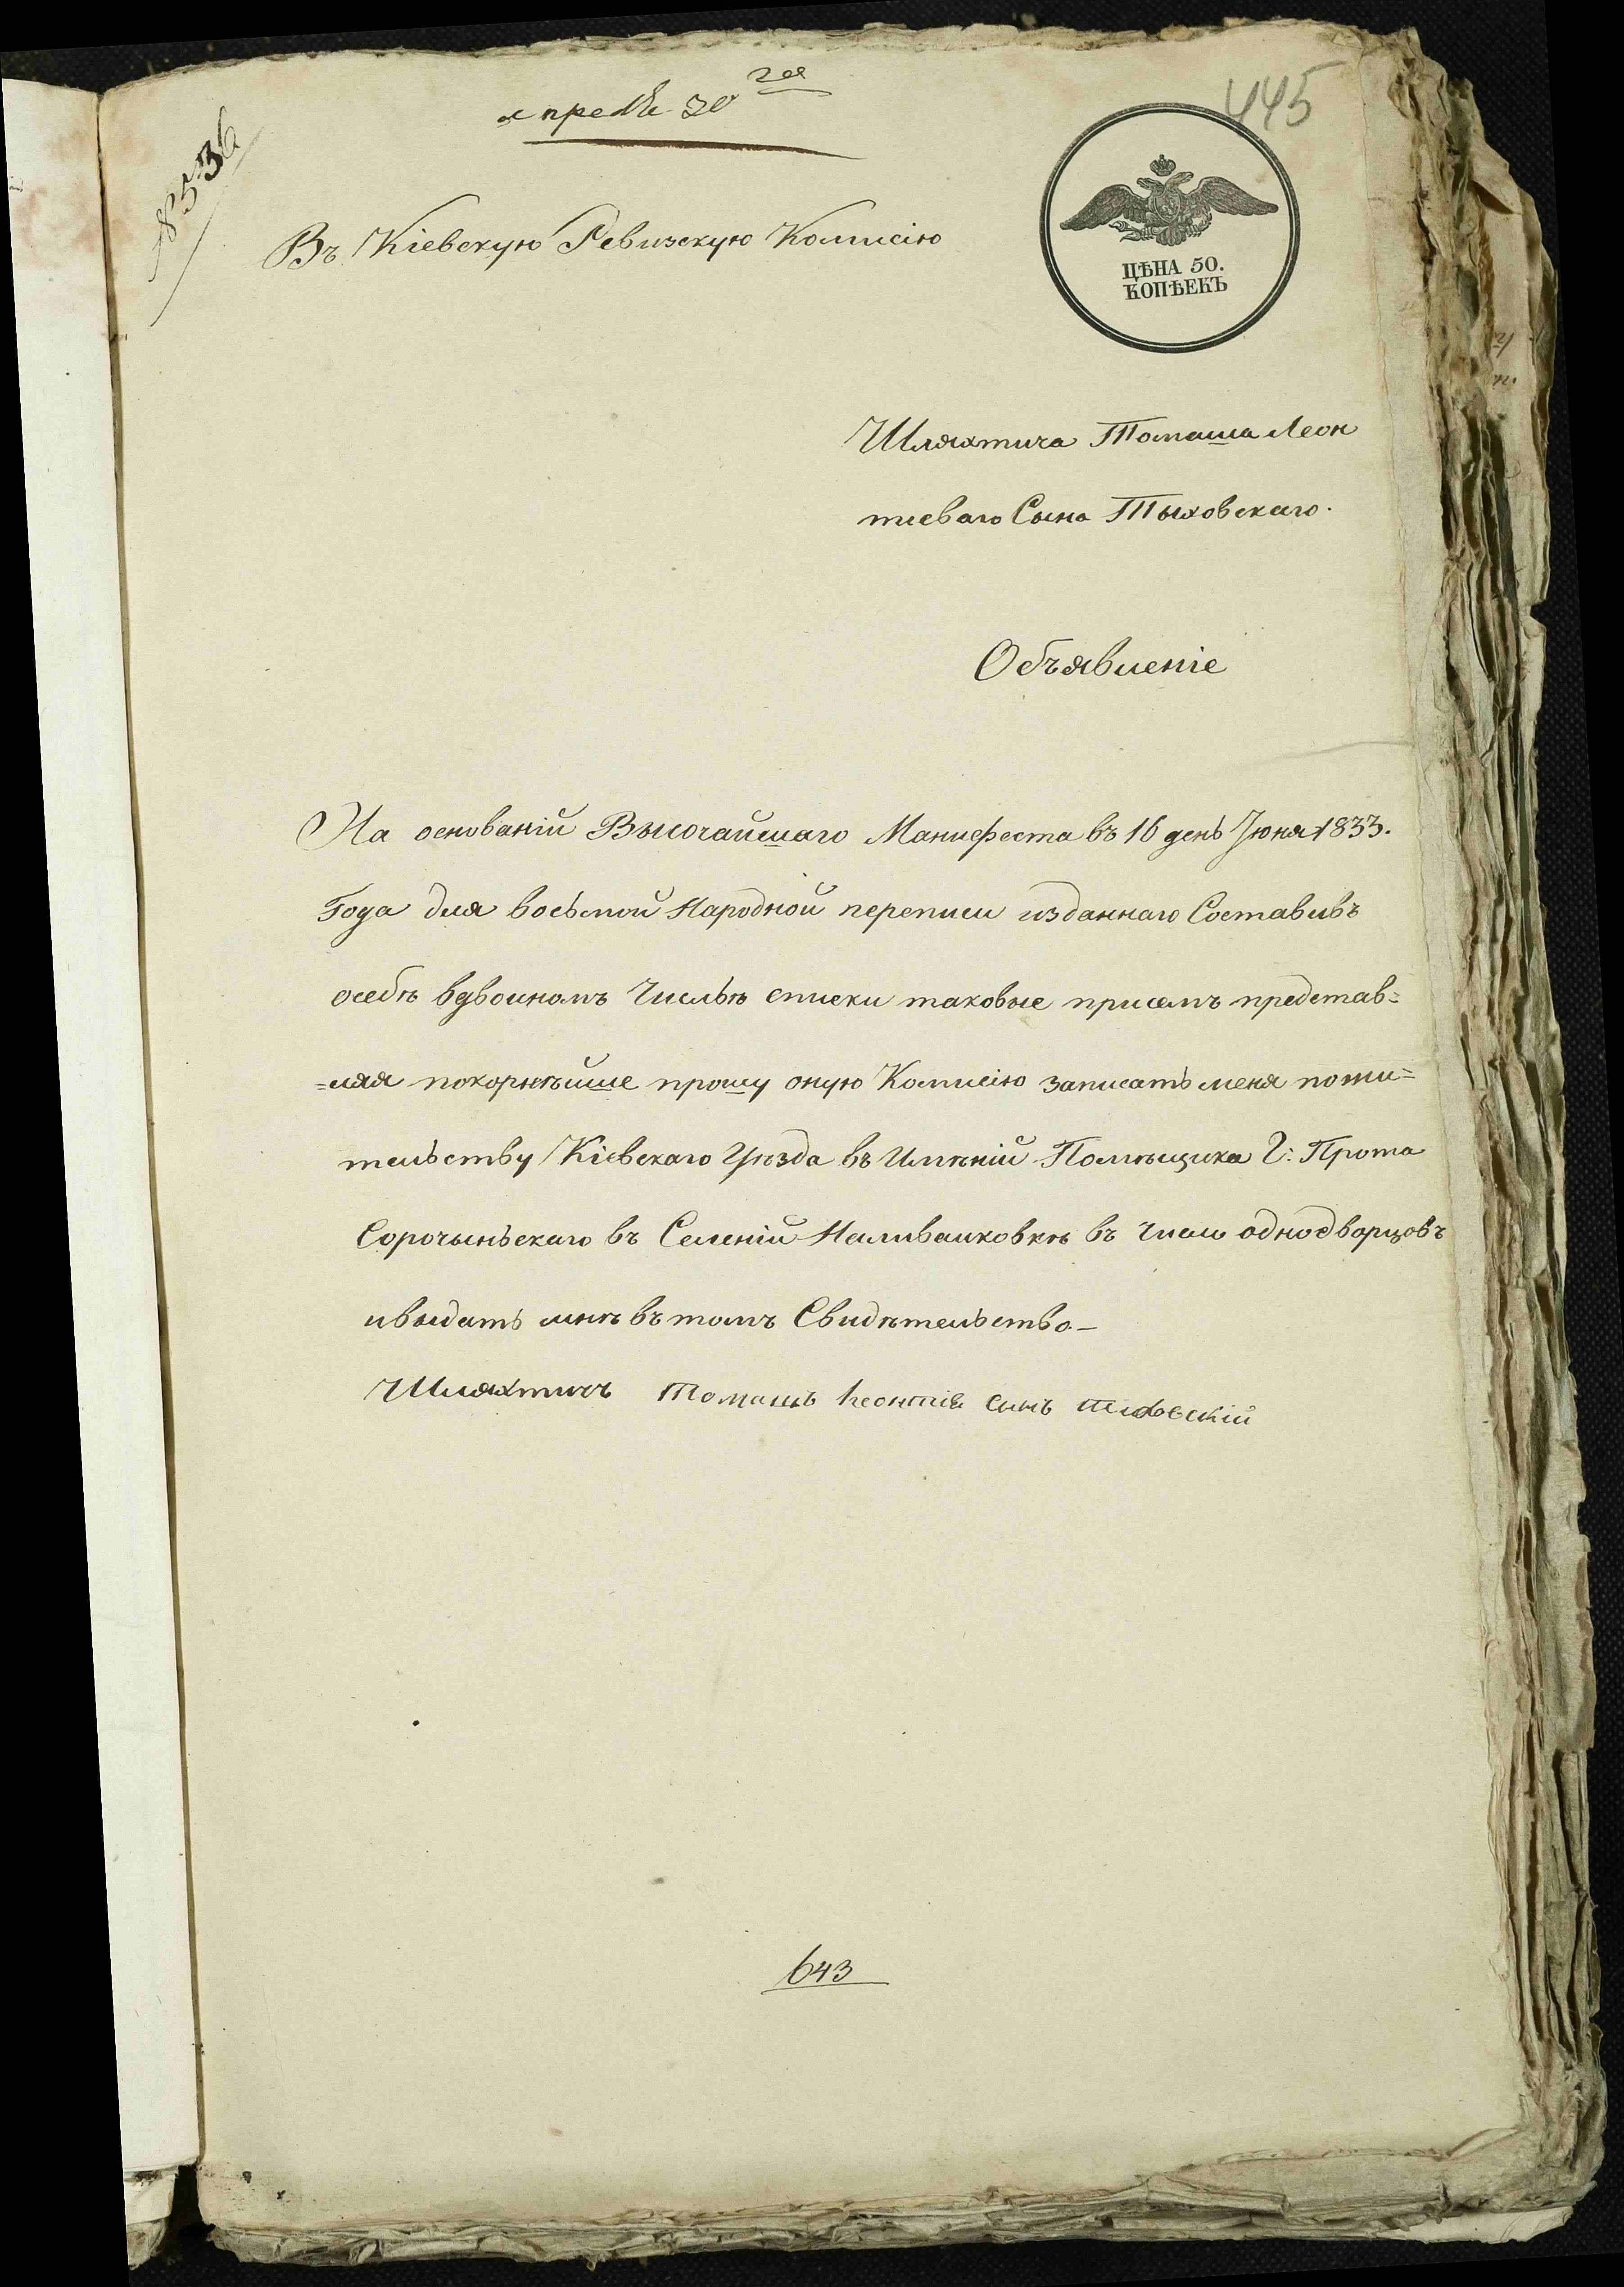 апреля 30го
445
18536
Въ Кіевскую Ревизскую Комисію
ЦѢНА 50.
КОПѢЕКЪ
Шляхтича Томаша Леон
тіеваго Сына Тыховскаго.
Объявленіе
На основаній Высочайшаго Манифеста въ 16 день Іюня 1833.
Года для восьмой Народной переписи изданнаго Составивъ
осебѣ вдвоиномъ Числѣ списки таковые присемъ представ=
=ляя покорнѣйше прошу оную Комисію записать меня пожи=
тельству Кіевскаго Уѣзда въ Имѣній Помѣщика Г: Прота
Сорочыньскаго въ Селеній Наливаиковкѣ въ число однодворцовъ
ивыдать мнѣ въ томъ Свидѣтельство.—
Шляхтичъ Томашъ Леонтія сынъ Тиховскій
643